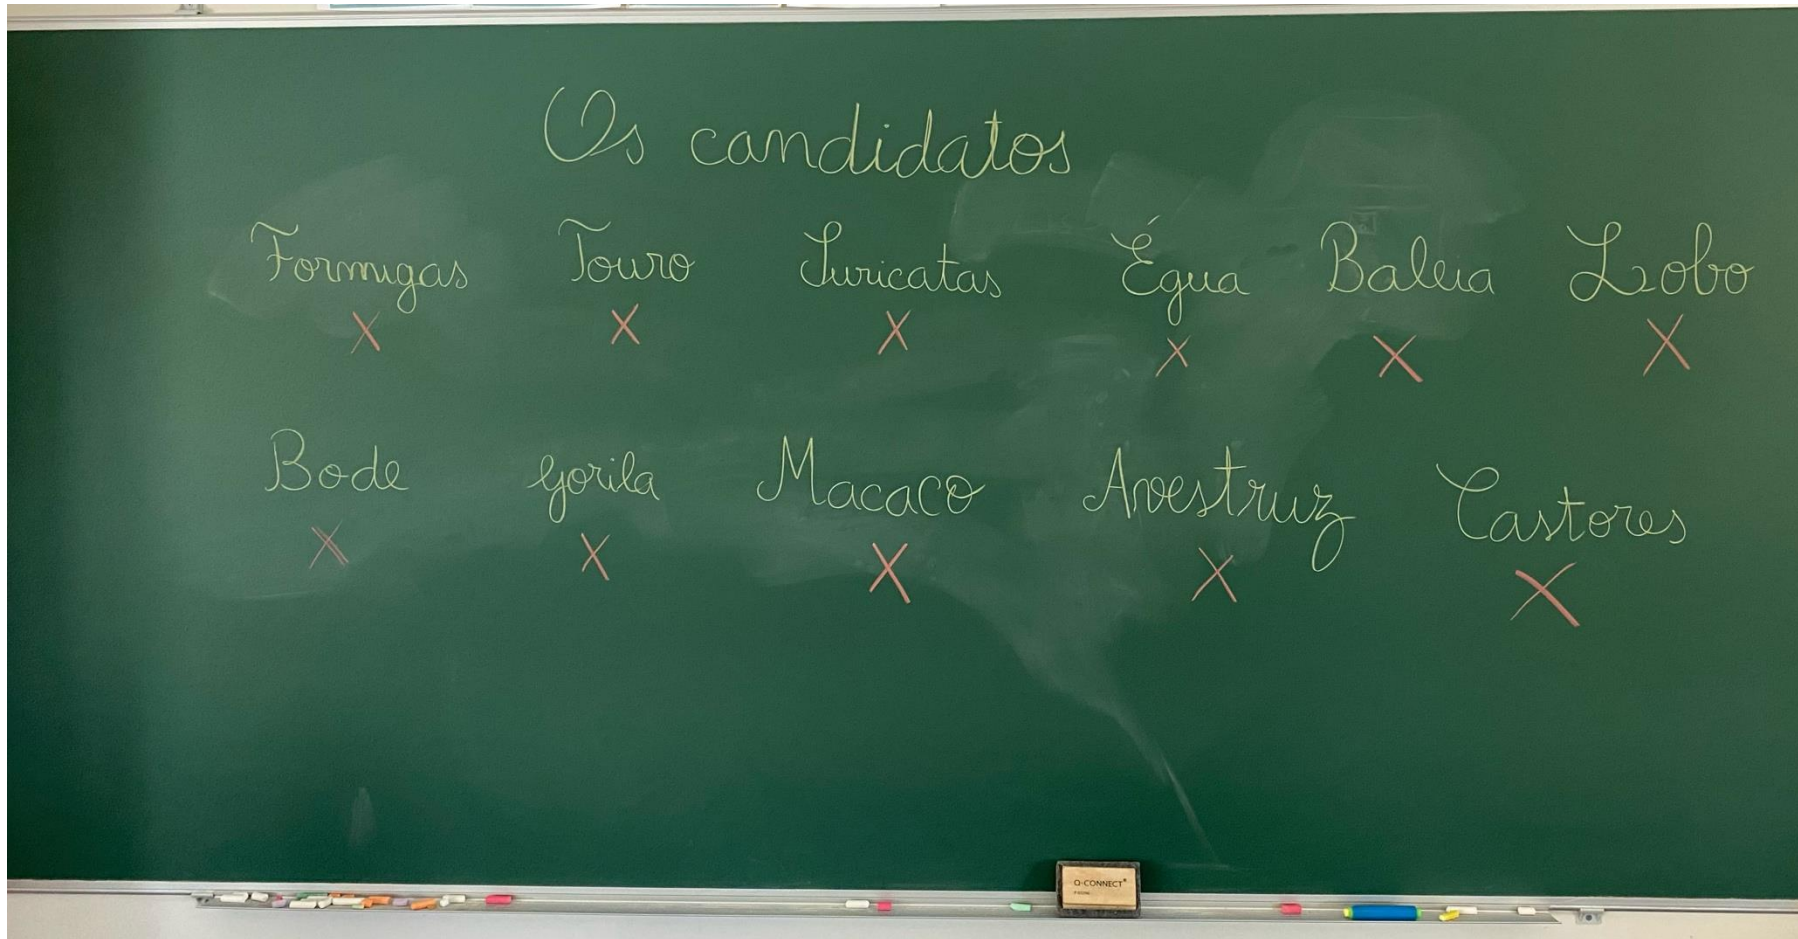 Os candidatos
Formigas Touro Suricatas Égua Baleia Lobo
X X X X X X
Bode Gorila Macaco Avestruz Castores
X X X X X
Q-CONNECT®